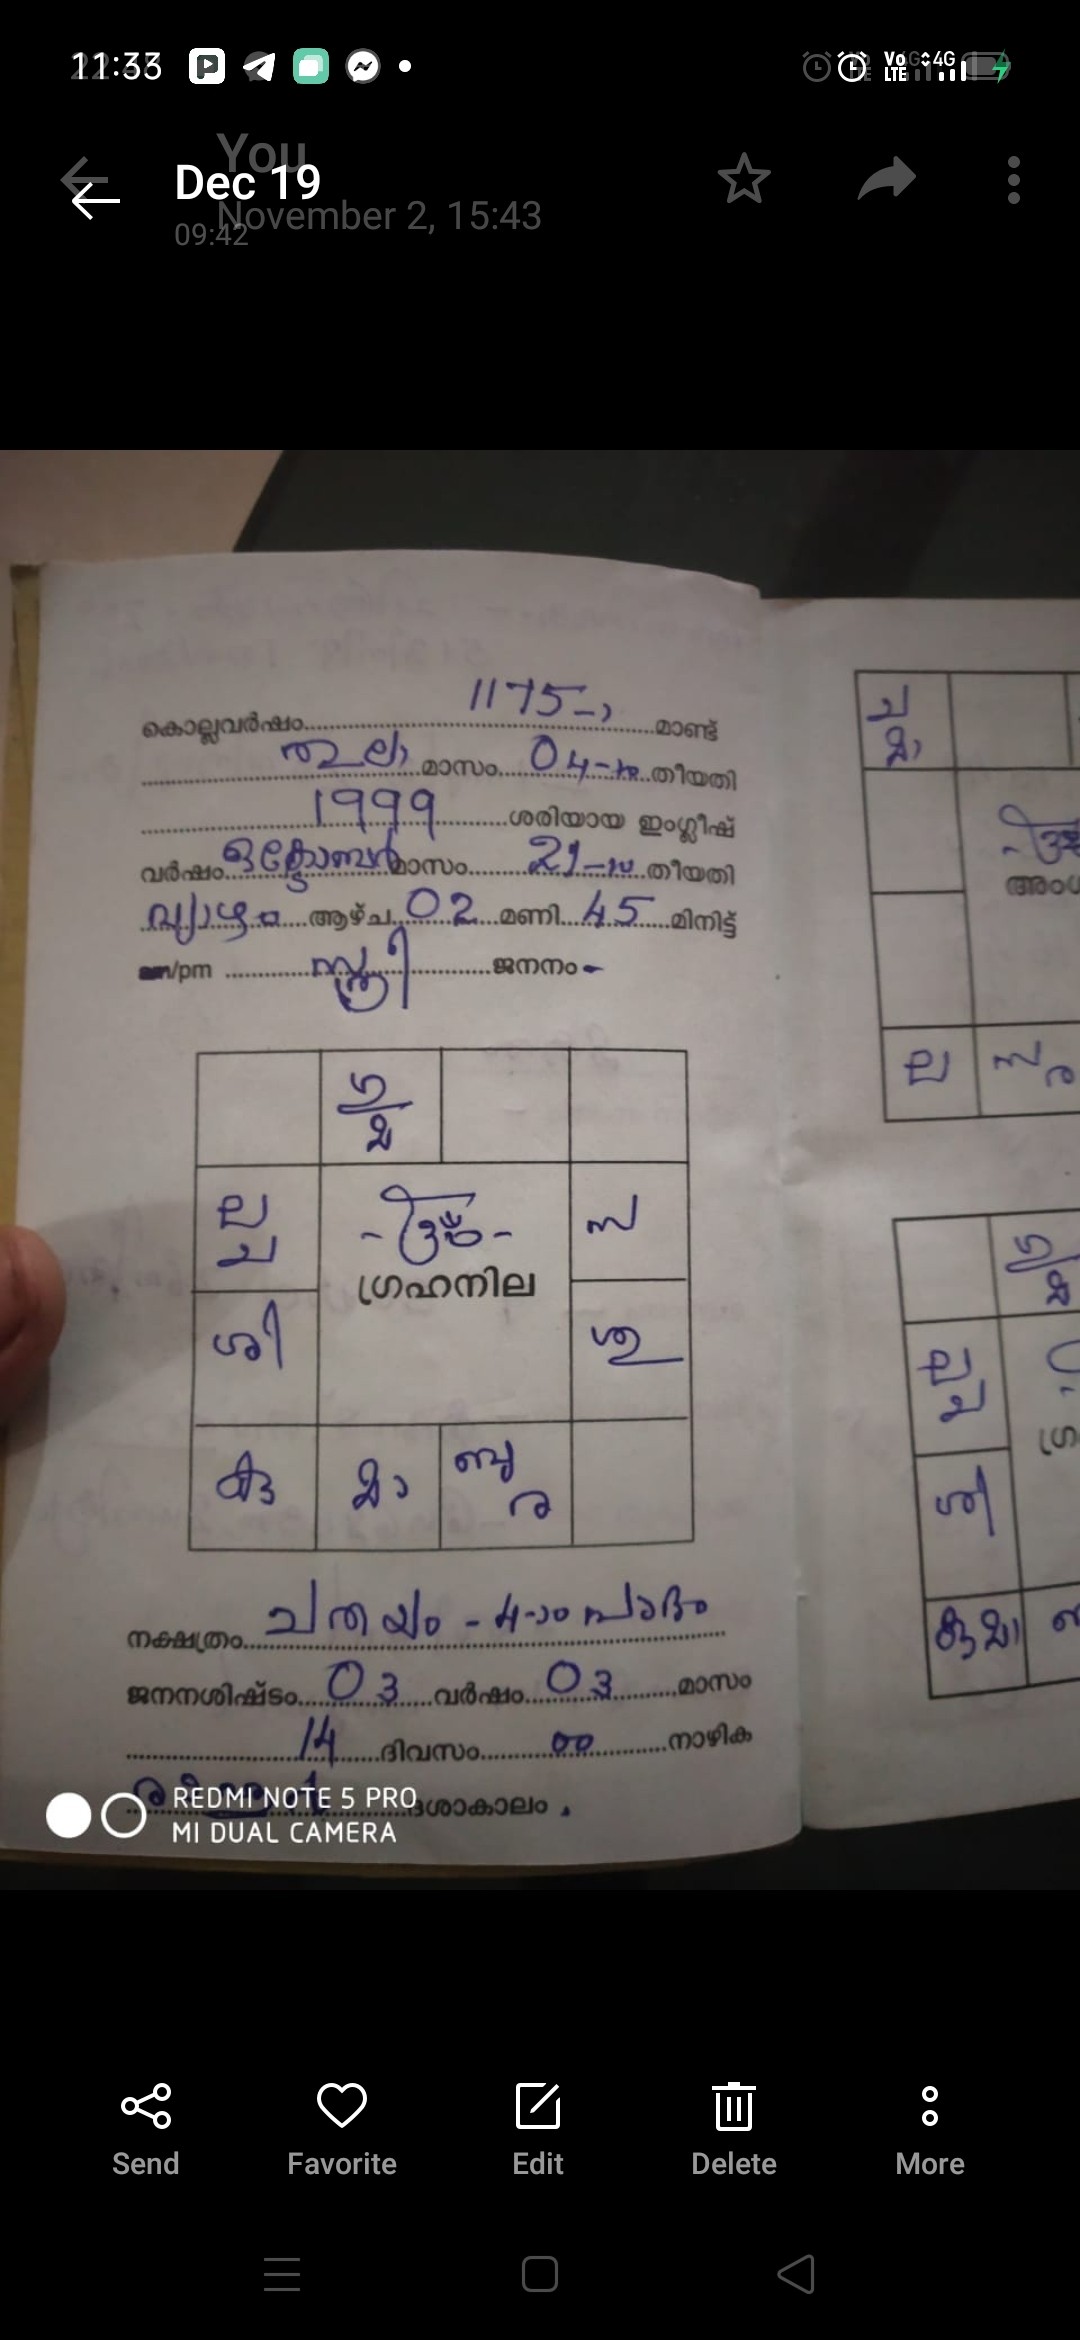 11:33
VoLTE 4G
You
Dec 19
November 2, 15:43
09:42
1175-ാ
കൊല്ലവർഷം............മാണ്ട്
തുലാ മാസം 04-ാം തീയതി
1999 ശരിയായ ഇംഗ്ലീഷ്
വർഷം ഒക്ടോബർ മാസം 21-ാം തീയതി
വ്യാഴം ആഴ്ച 02 മണി 45 മിനിട്ട്
am/pm സ്ത്രീ ജനനം-
ഗു
മ
ല
ച
ഗ്രഹനില
സ
ശി
ശു
കു
മാ
ബു
ര
നക്ഷത്രം ചതയം - 4-ാം പാദം
ജനനശിഷ്ടം 03 വർഷം 03 മാസം
14 ദിവസം 00 നാഴിക
ദശാകാലം
ച
മാ
ല
സ
ര
ഗു
മ
ല
ച
ശി
കു മാ
REDMI NOTE 5 PRO
MI DUAL CAMERA
Send
Favorite
Edit
Delete
More